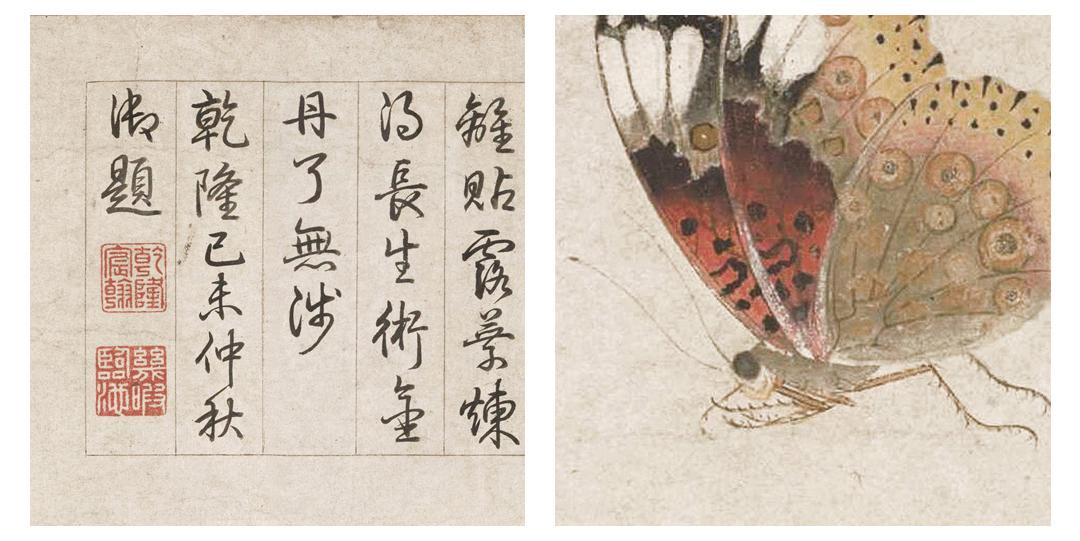 貼露煉
得長生術金
丹了無涉
乾隆己未仲秋
御題
乾隆宸翰
幾暇臨池